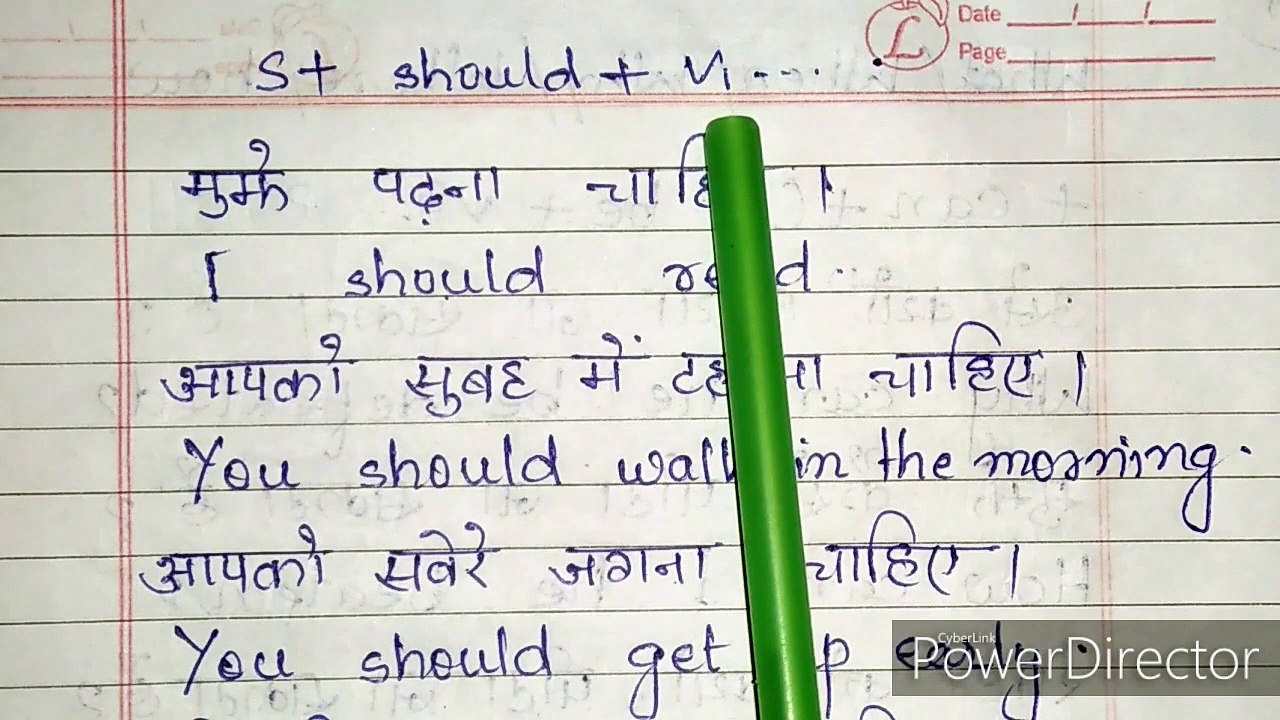 Date __/__/__
Page
S+ should + V1 ....
मुझे पढ़ना ।
I should
आपको सुबह में चाहिए ।
You should in the morning.
आपको सवेरे जगना चाहिए ।
You should get early.
CyberLink
PowerDirector